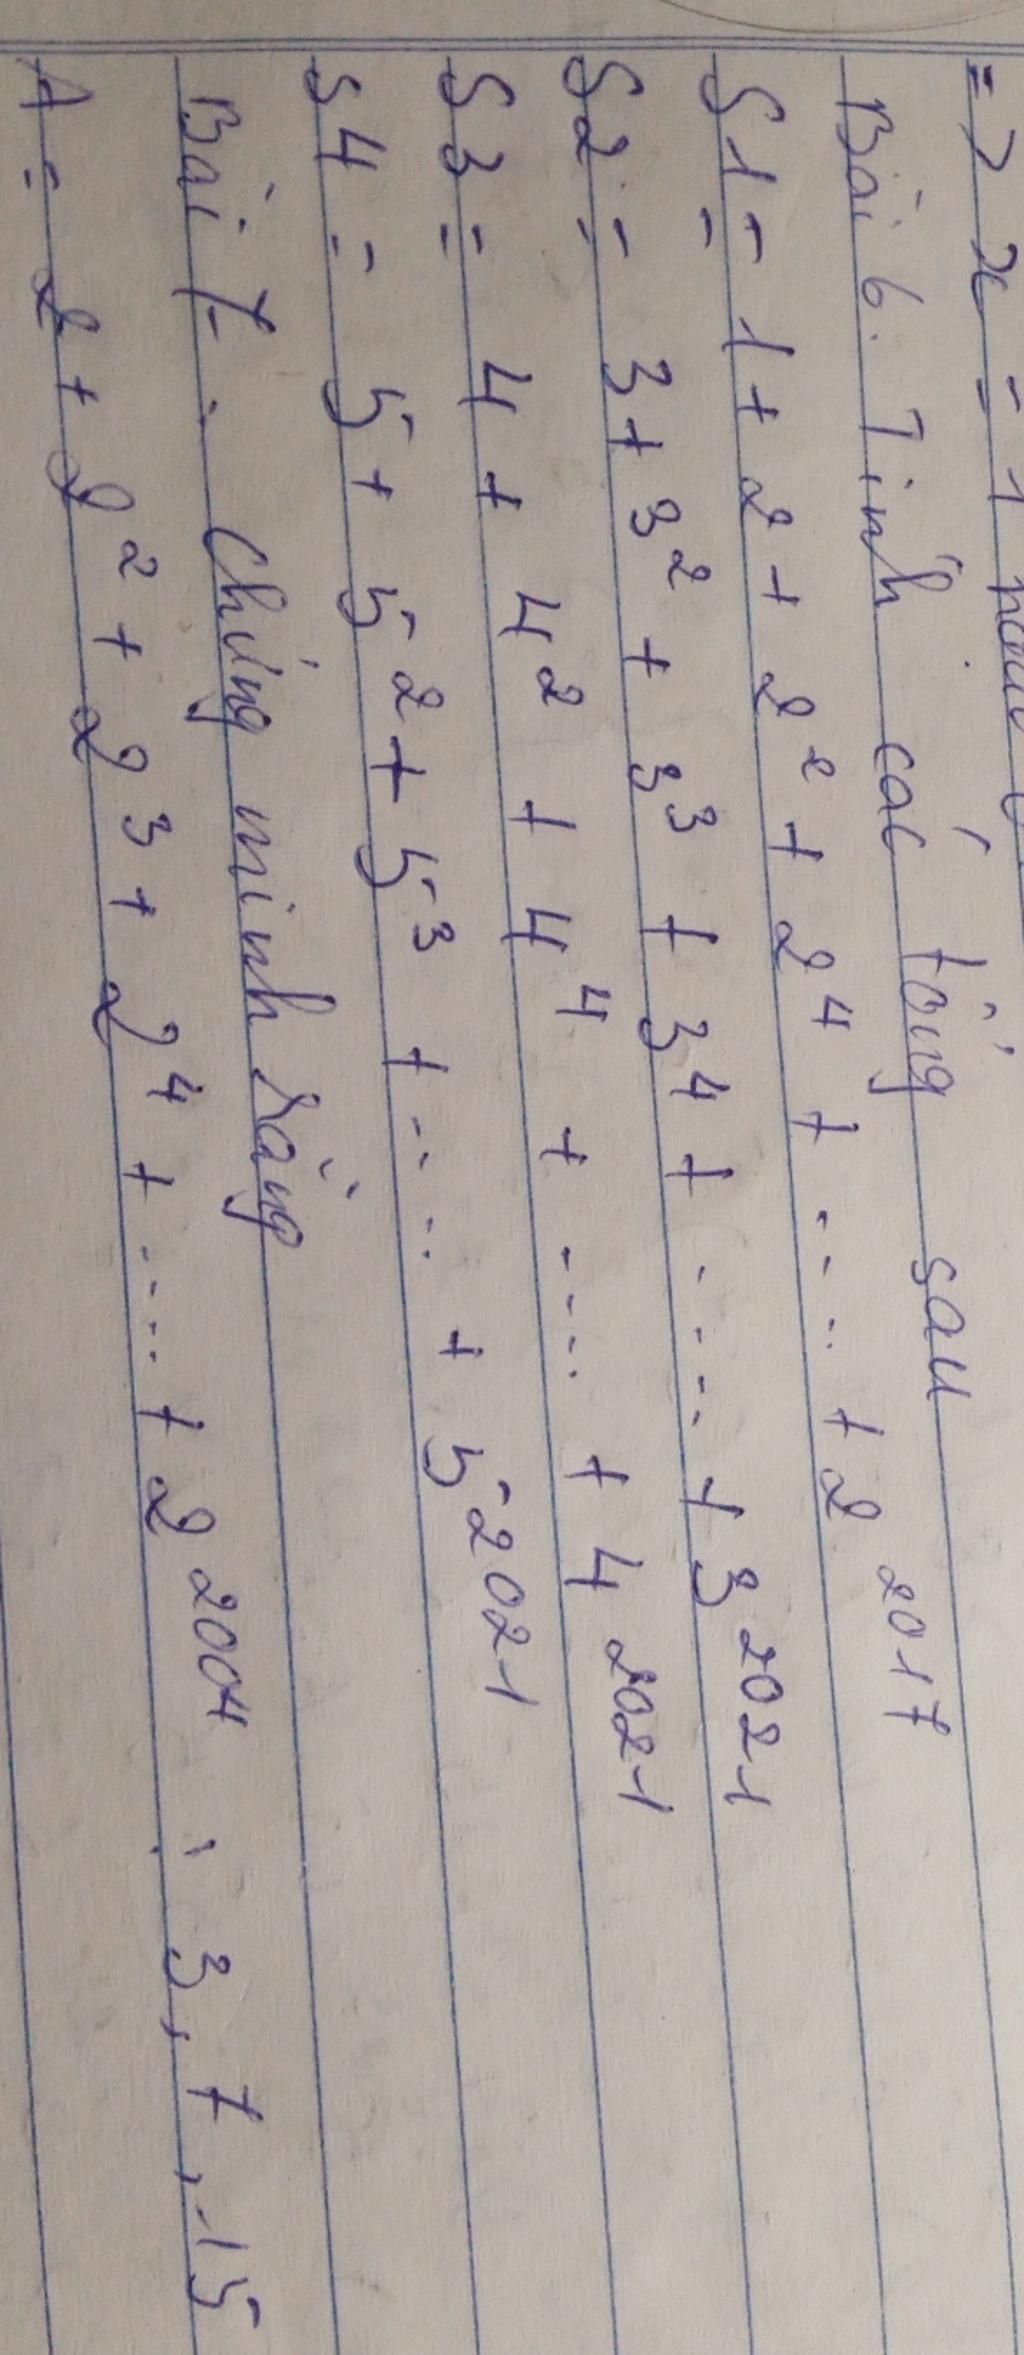 => x = 1
Bài 6. Tính các tổng sau
S1 = 1 + 2 + 2² + 2⁴ + .... + 2²⁰¹⁷
S2 = 3 + 3² + 3³ + 3⁴ + ..... + 3²⁰²¹
S3 = 4 + 4² + 4⁴ + ..... + 4²⁰²¹
S4 = 5 + 5² + 5³ + ..... + 5²⁰²¹
Bài 7. Chứng minh rằng
A = 2 + 2² + 2³ + 2⁴ + ..... + 2²⁰⁰⁴ : 3, 7, 15